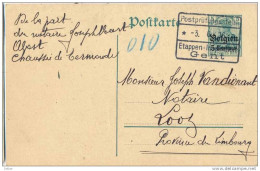 De la part
du notaire Joseph
Alost
Chaussée de Termonde
Postkarte
010
Postprüfungsstelle
- 3.
Belgien
5 Centimes
Etappen-
Gent
Monsieur Joseph Vandirant
Notaire
Looz
Province de Limbourg